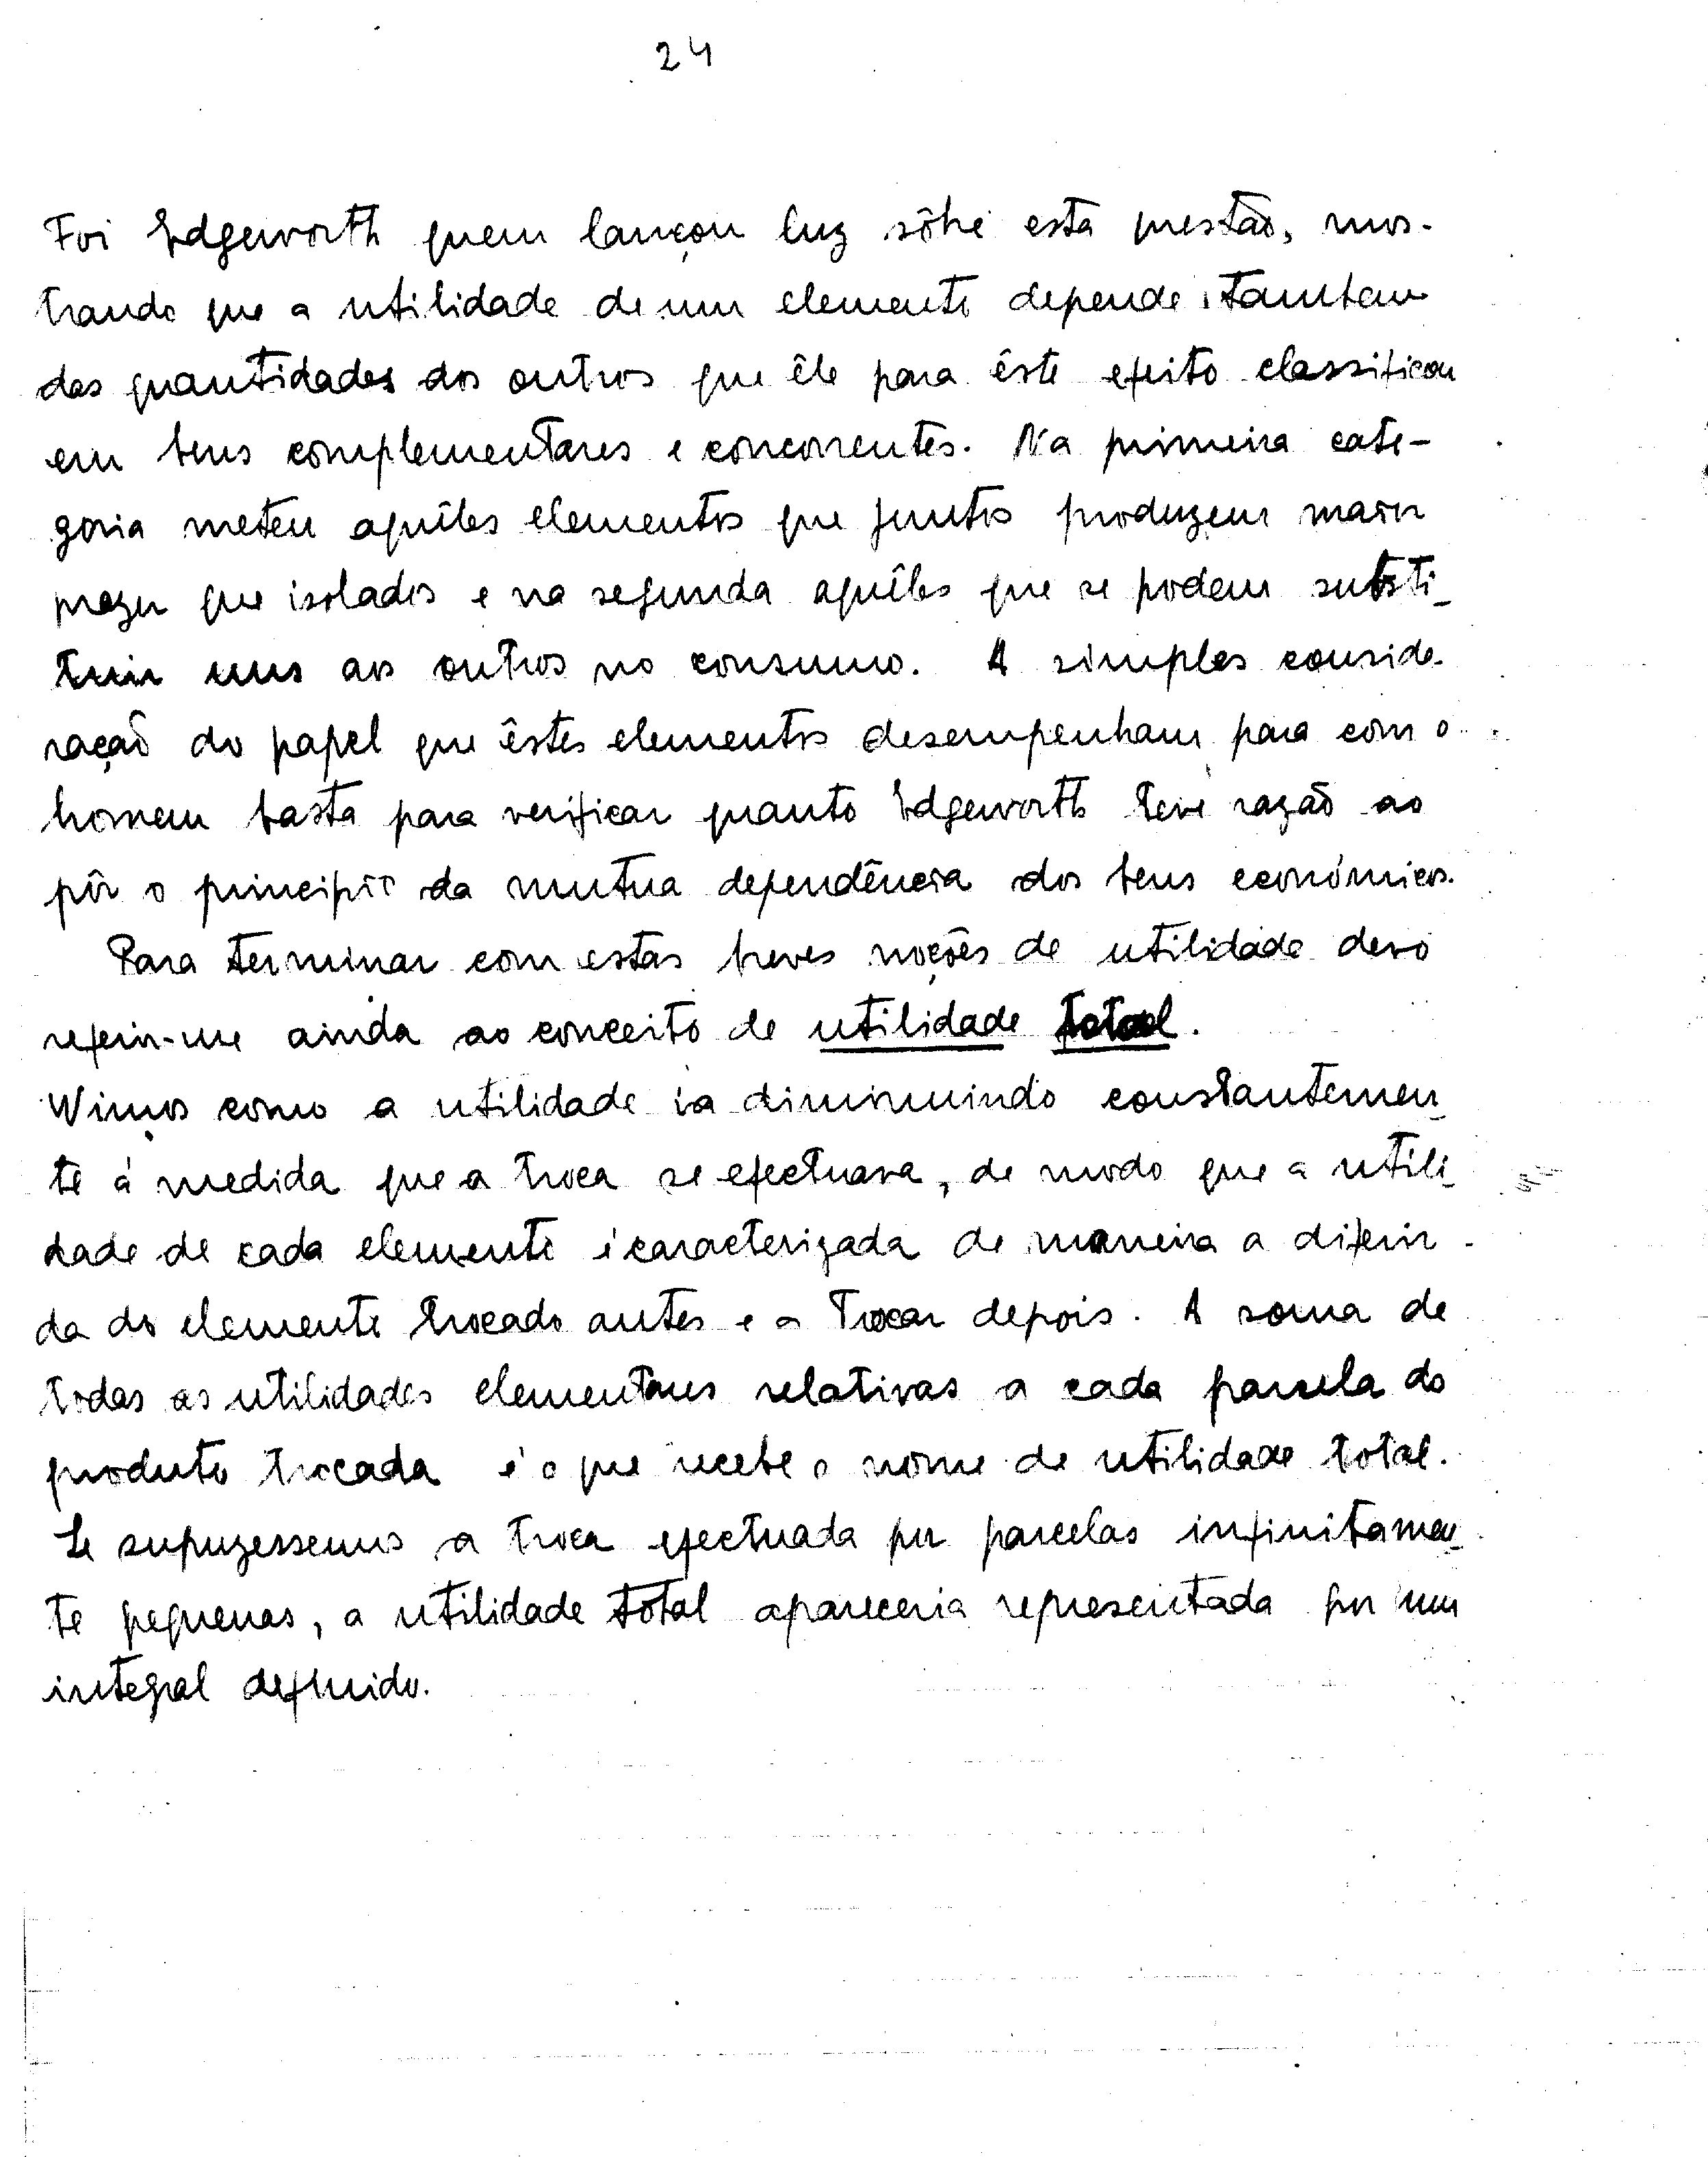 24
Foi Edgeworth quem lançou luz sôbre esta questão, mos-
trando que a utilidade de um elemento depende tambem
das quantidades dos outros que êle para êste efeito classificou
em bens complementares e concorrentes. Na primeira cate-
goria meteu aquêles elementos que juntos produzem maior
prazer que isolados e na segunda aquêles que se podem substi-
tuir uns aos outros no consumo. A simples conside-
ração do papel que êstes elementos desempenham para com o
homem basta para verificar quanto Edgeworth teve razão ao
pôr o principio da mutua dependência dos bens económicos.
Para terminar com estas breves noções de utilidade devo
referir-me ainda ao conceito de utilidade total.
Vimos como a utilidade ia diminuindo constantemen-
te á medida que a troca se efectuava, de modo que a utili-
dade de cada elemento é caracterizada de maneira a diferir
da do elemento trocado antes e a trocar depois. A soma de
todas as utilidades elementares relativas a cada parcela do
produto trocada é o que recebe o nome de utilidade total.
Se supuzessemos a troca efectuada por parcelas infinitamen-
te pequenas, a utilidade total apareceria representada por um
integral definido.